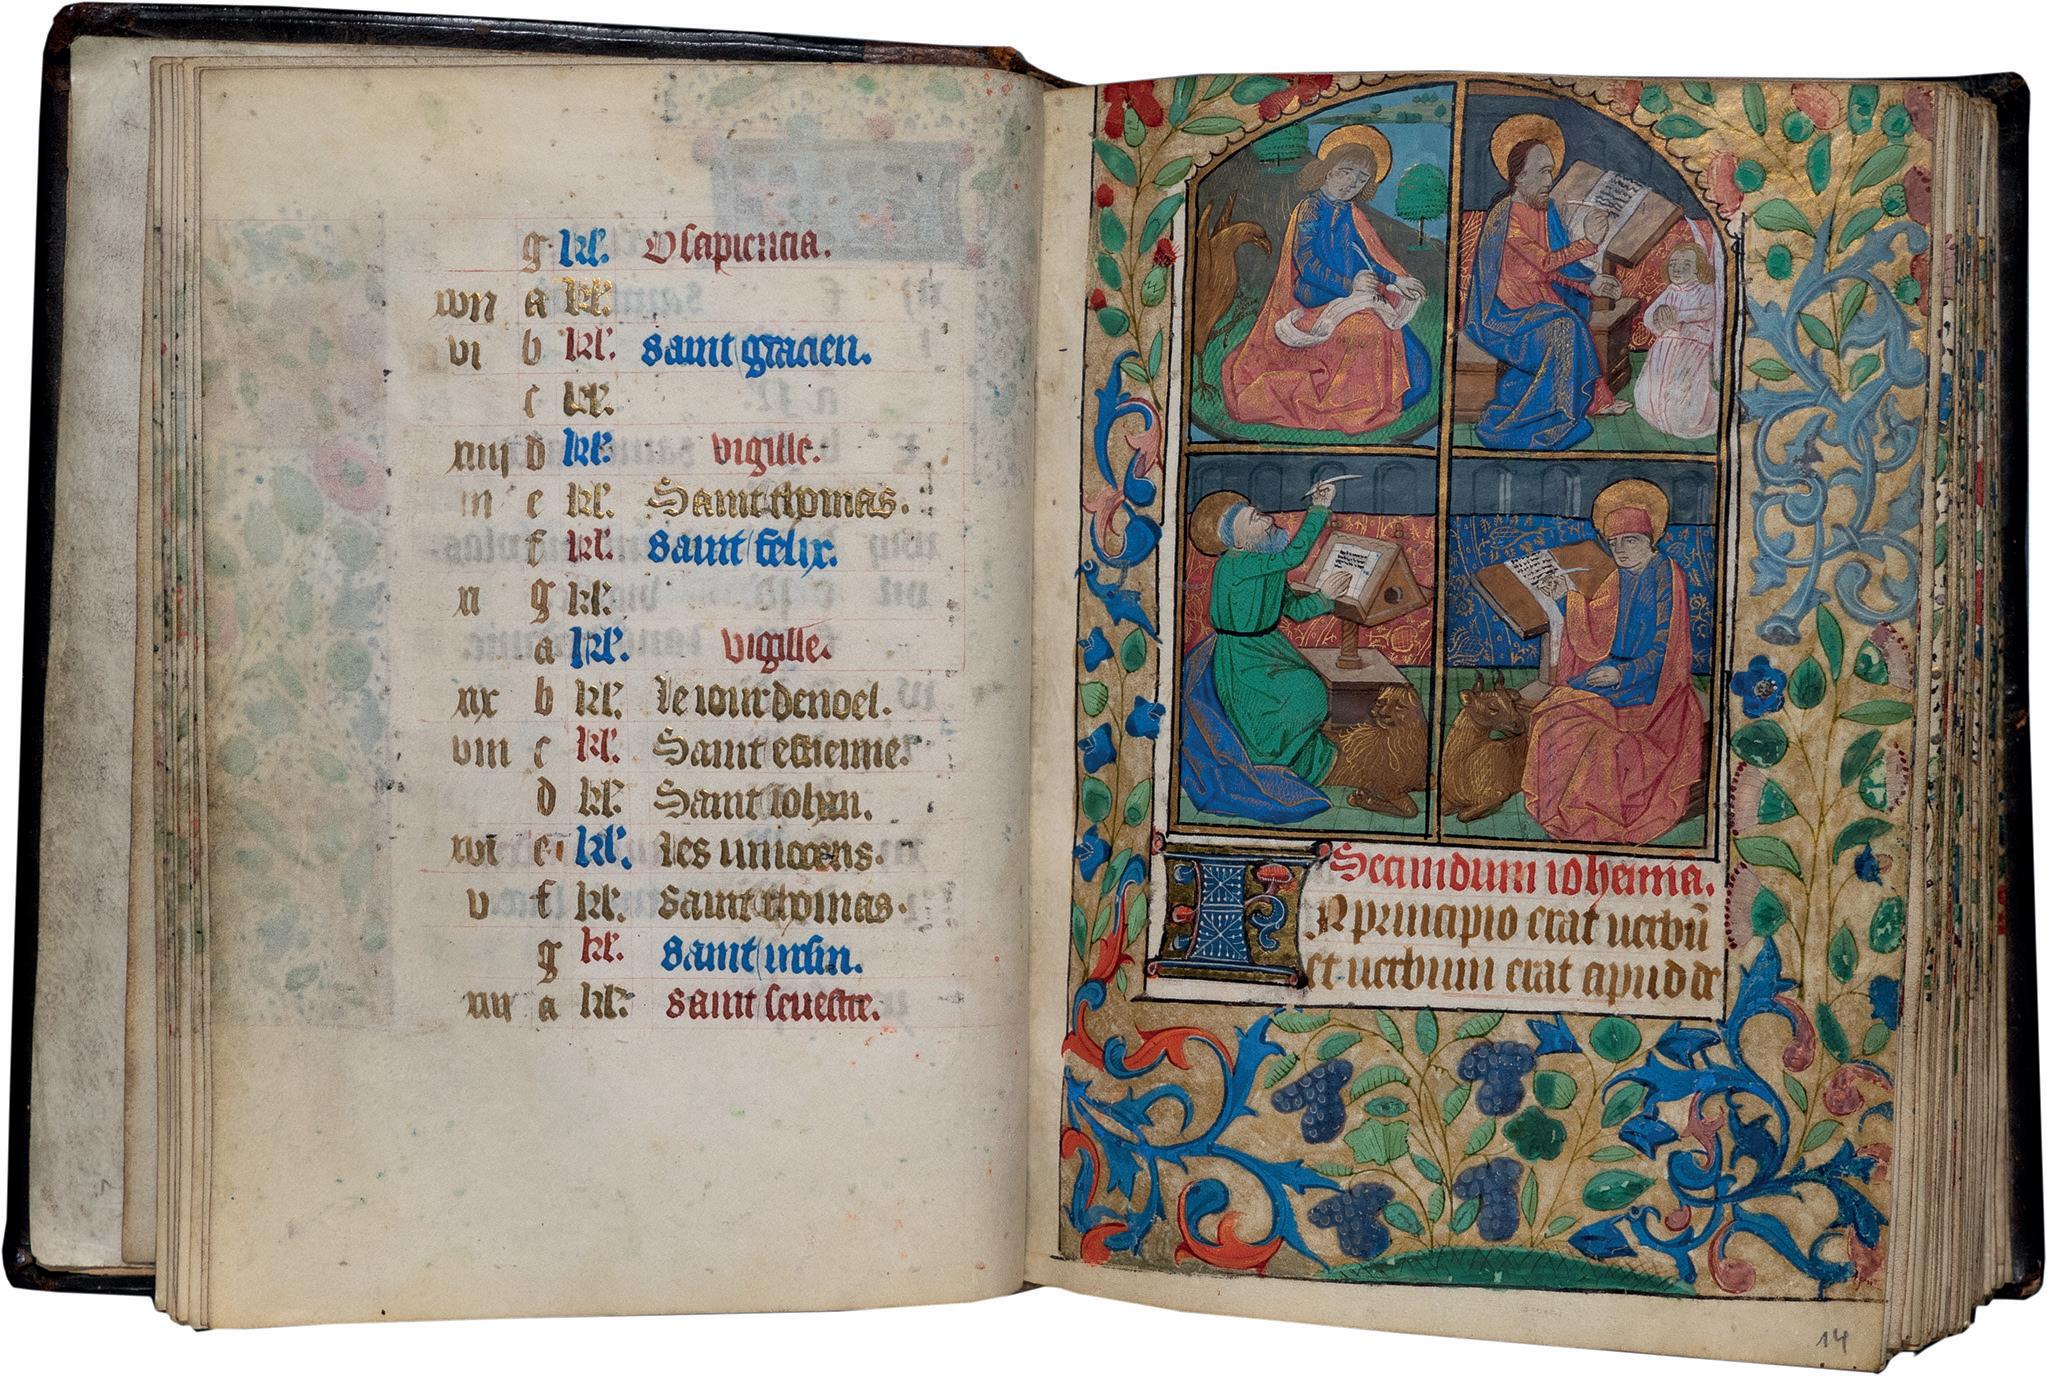 g kl'. O sapiencia.
xvii a kl'.
vi b kl'. saint gracien.
c kl'.
xiiii d kl'. vigille.
iii e kl'. Saint thomas.
f kl'. saint felix.
xi g kl'.
a kl'. vigille.
xix b kl'. le iour de noel.
viii c kl'. Saint estienne.
d kl'. Saint iohan.
xvi e kl'. les innocens.
v f kl'. saint thomas.
g kl'. saint ursin.
xiii a kl'. saint sevestre.
Secundum iohanna.
IN principio erat verbū
et verbum erat apud de
14